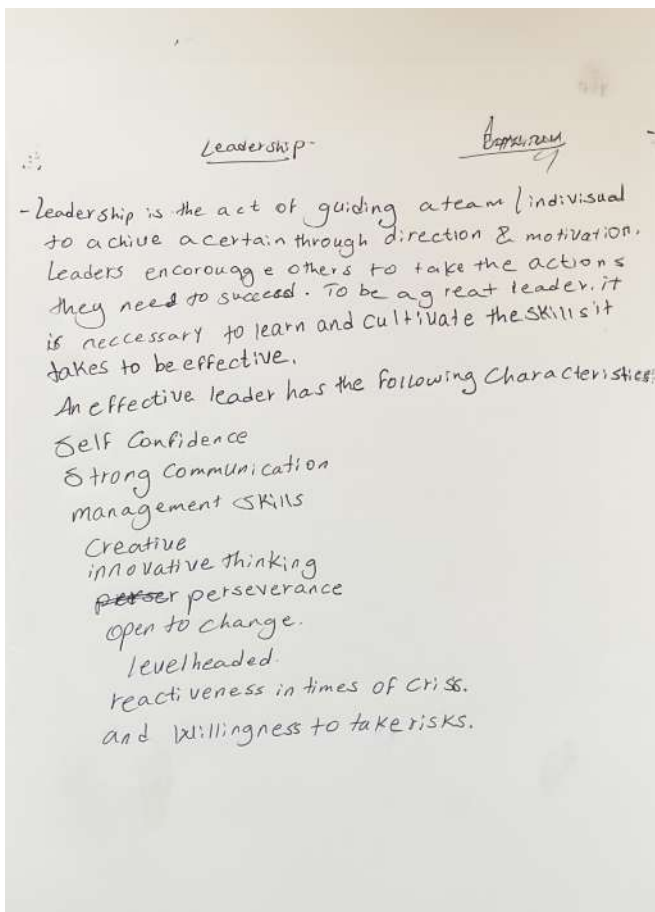 Leadership-
- Leadership is the act of guiding a team / indivisual
to achive a certain through direction & motivation.
Leaders encorougge others to take the actions
they need to succeed. To be a great leader. it
is neccessary to learn and cultivate the skills it
takes to be effective.
An effective leader has the following Characteristics:
Self Confidence
Strong Communication
management skills
Creative
innovative thinking
perseverance
open to change.
levelheaded.
reactiveness in times of criss.
and willingness to take risks.